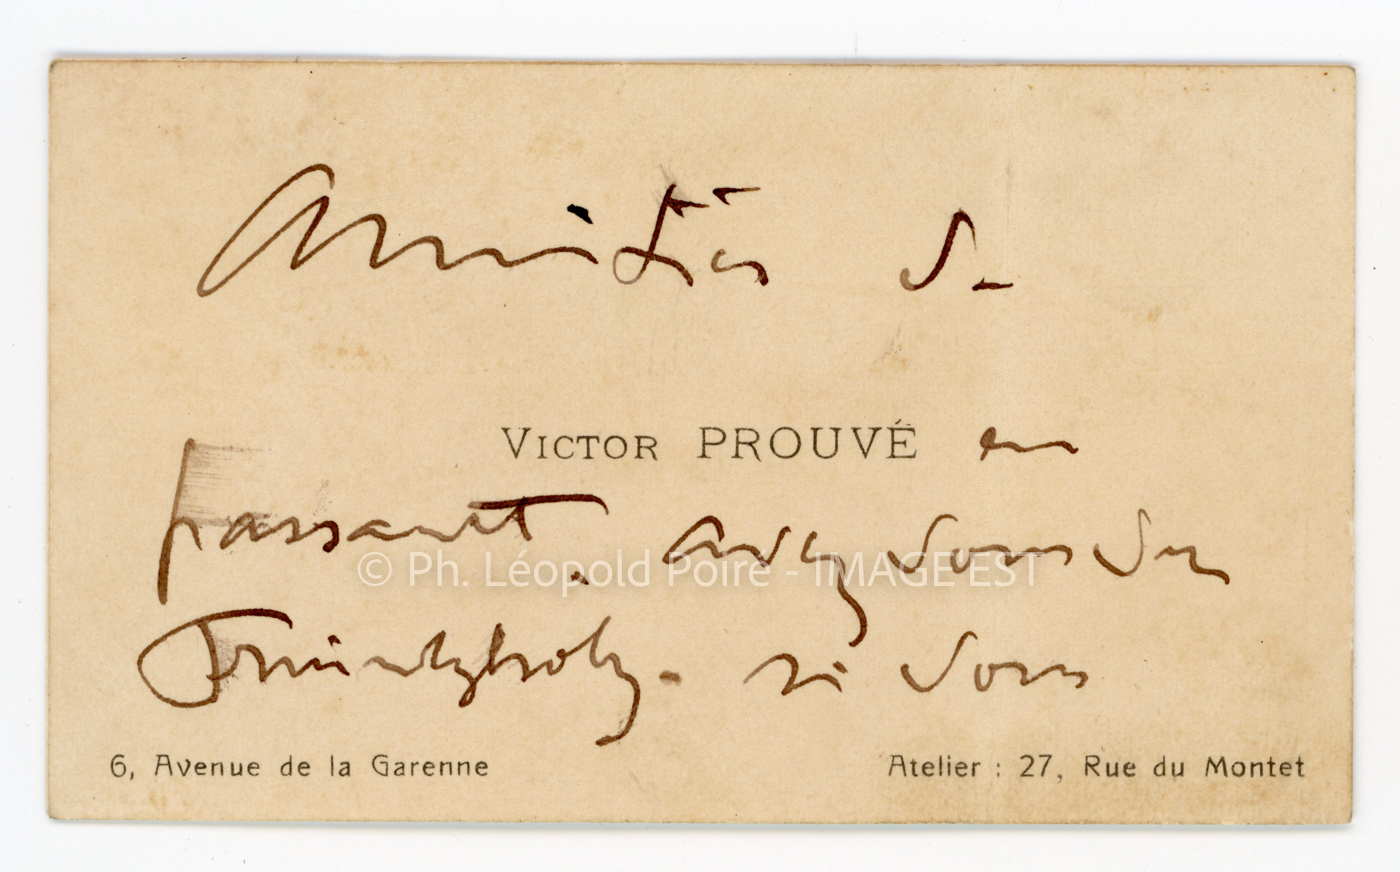 Amitiés de
VICTOR PROUVÉ en
passant. Avez vous vu
© Ph. Léopold Poiré - IMAGE'EST
si vous
6, Avenue de la Garenne
Atelier : 27, Rue du Montet